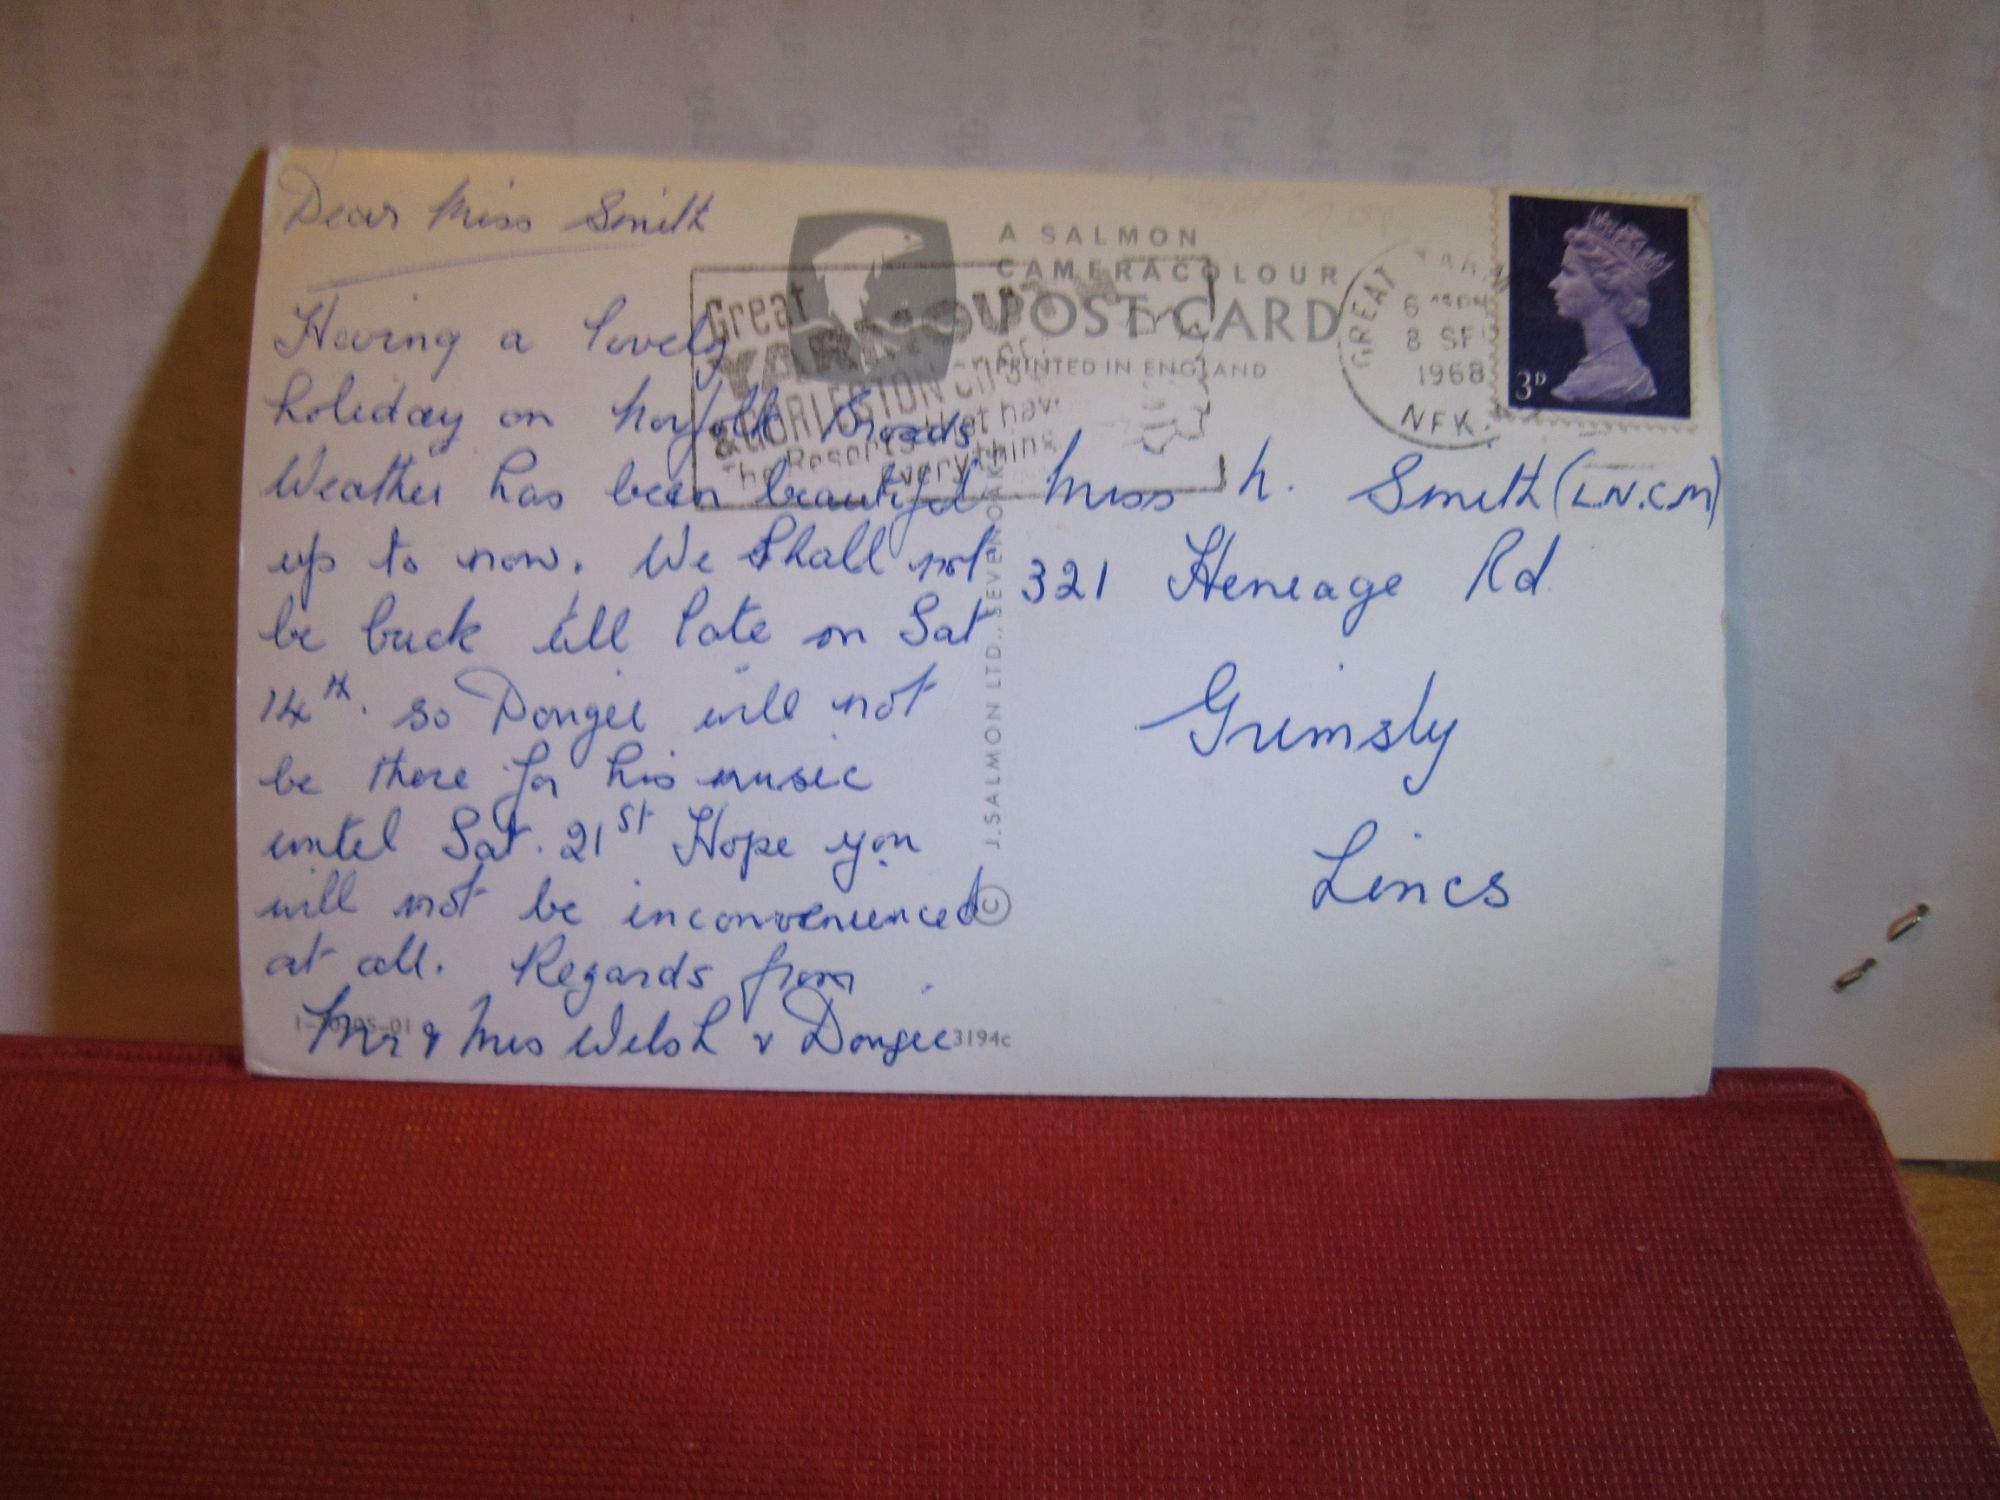 Dear Miss Smith
Having a lovely
holiday on Norfolk Broads
Weather has been beautiful
up to now. We shall not
be back till late on Sat
14th. so Dougee will not
be there for his music
until Sat. 21st Hope you
will not be inconvenienced
at all. Regards from
Mr & Mrs Welsh & Dougee
A SALMON
CAMERACOLOUR
POST CARD
PRINTED IN ENGLAND
Great
YARMOUTH
& GORLESTON on Sea
The Resorts that have
everything
GREAT YARM
6
8 SE
1968
NFK.
3D
Miss N. Smith (L.N.C.M)
321 Heneage Rd
Grimsly
Lincs
© J. SALMON LTD., SEVENOAKS
3194c